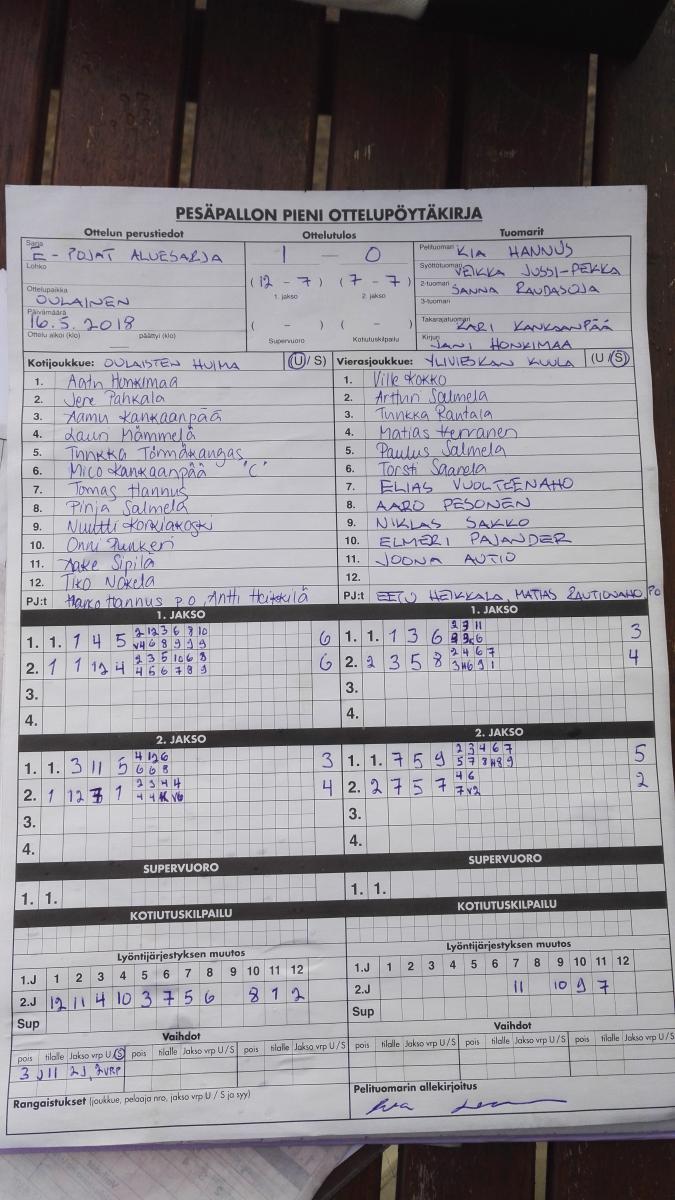 PESÄPALLON PIENI OTTELUPÖYTÄKIRJA
Ottelun perustiedot Ottelutulos Tuomarit
Sarja E - POJAT ALUESARJA
Lohko
Ottelupaikka OULAINEN
Päivämäärä 16.5.2018
Ottelu alkoi (klo) päättyi (klo)
1 — 0
(12 - 7) (7 - 7)
1. jakso 2. jakso
( - ) ( - )
Supervuoro Kotiutuskilpailu
Pelituomari KIA HANNUS
Syöttötuomari VEIKKA JUSSI-PEKKA
2-tuomari SANNA RAUDASOJA
3-tuomari
Takarajatuomari KARI KANKAANPÄÄ
Kirjuri JANI HONKIMAA
Kotijoukkue: OULAISTEN HUIMA (U / S)
1. Aatu Honkimaa
2. Jere Pahkala
3. Aamu Kankaanpää
4. Lauri Mämmelä
5. Tuukka Törmäkangas
6. Mico Kankaanpää "C"
7. Tomas Hannus
8. Pinja Salmela
9. Nuutti Korkiakoski
10. Onni Junkeri
11. Aake Sipilä
12. Tiko Nokela
PJ:t Harro Hannus P.O, Antti Heikkilä
Vierasjoukkue: YLIVIESKAN KUULA (U / S)
1. Ville Kokko
2. Artturi Salmela
3. Tuukka Rantala
4. Matias Herranen
5. Paulus Salmela
6. Torsti Saarela
7. ELIAS VUOLTEENAHO
8. AARO PESONEN
9. NIKLAS SAKKO
10. ELMERI PAJANDER
11. JOONA AUTIO
12.
PJ:t EETU HEIKKALA, MATIAS RAUTIONAHO PO
1. JAKSO
1. 1. 1 4 5 2 12 3 6 8 10 6
2. 1 1 12 4 2 3 5 10 6 8 6
4 5 6 7 8 9
3.
4.
1. JAKSO
1. 1. 1 3 6 2 3 11 3
2. 2 3 5 8 2 4 6 7 4
3.
4.
2. JAKSO
1. 1. 3 11 5 4 12 6 3
6 6 8
2. 1 12 1 2 3 4 4 4
3.
4.
2. JAKSO
1. 1. 7 5 9 2 3 4 6 7 5
2. 2 7 5 7 4 6 2
3.
4.
SUPERVUORO
1. 1.
SUPERVUORO
1. 1.
KOTIUTUSKILPAILU
KOTIUTUSKILPAILU
Lyöntijärjestyksen muutos
1.J 1 2 3 4 5 6 7 8 9 10 11 12
2.J 12 11 4 10 3 7 5 6 8 1 2
Sup
Lyöntijärjestyksen muutos
1.J 1 2 3 4 5 6 7 8 9 10 11 12
2.J 11 10 9 7
Sup
Vaihdot
pois tilalle Jakso vrp U / S pois tilalle Jakso vrp U / S pois tilalle Jakso vrp U / S
3 11 2J, 2VRP
Vaihdot
pois tilalle Jakso vrp U / S pois tilalle Jakso vrp U / S pois tilalle Jakso vrp U / S
Rangaistukset (joukkue, pelaaja nro, jakso vrp U / S ja syy)
Pelituomarin allekirjoitus